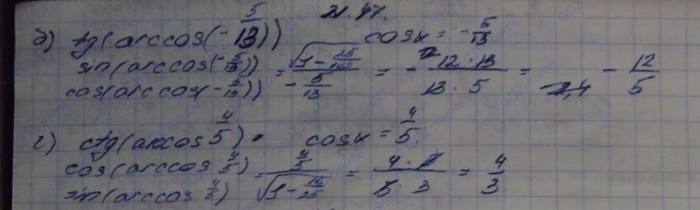 21.47.
б) tg(arccos(-5/13)) cosx = -5/13
sin(arccos(-5/13)) / cos(arccos(-5/13)) = √(1-25/169) / (-5/13) = -(12·13)/(13·5) = -12/5
c) ctg(arccos 4/5) cosx = 4/5
cos(arccos 4/5) / sin(arccos 4/5) = (4/5) / √(1-16/25) = (4·5)/(5·3) = 4/3